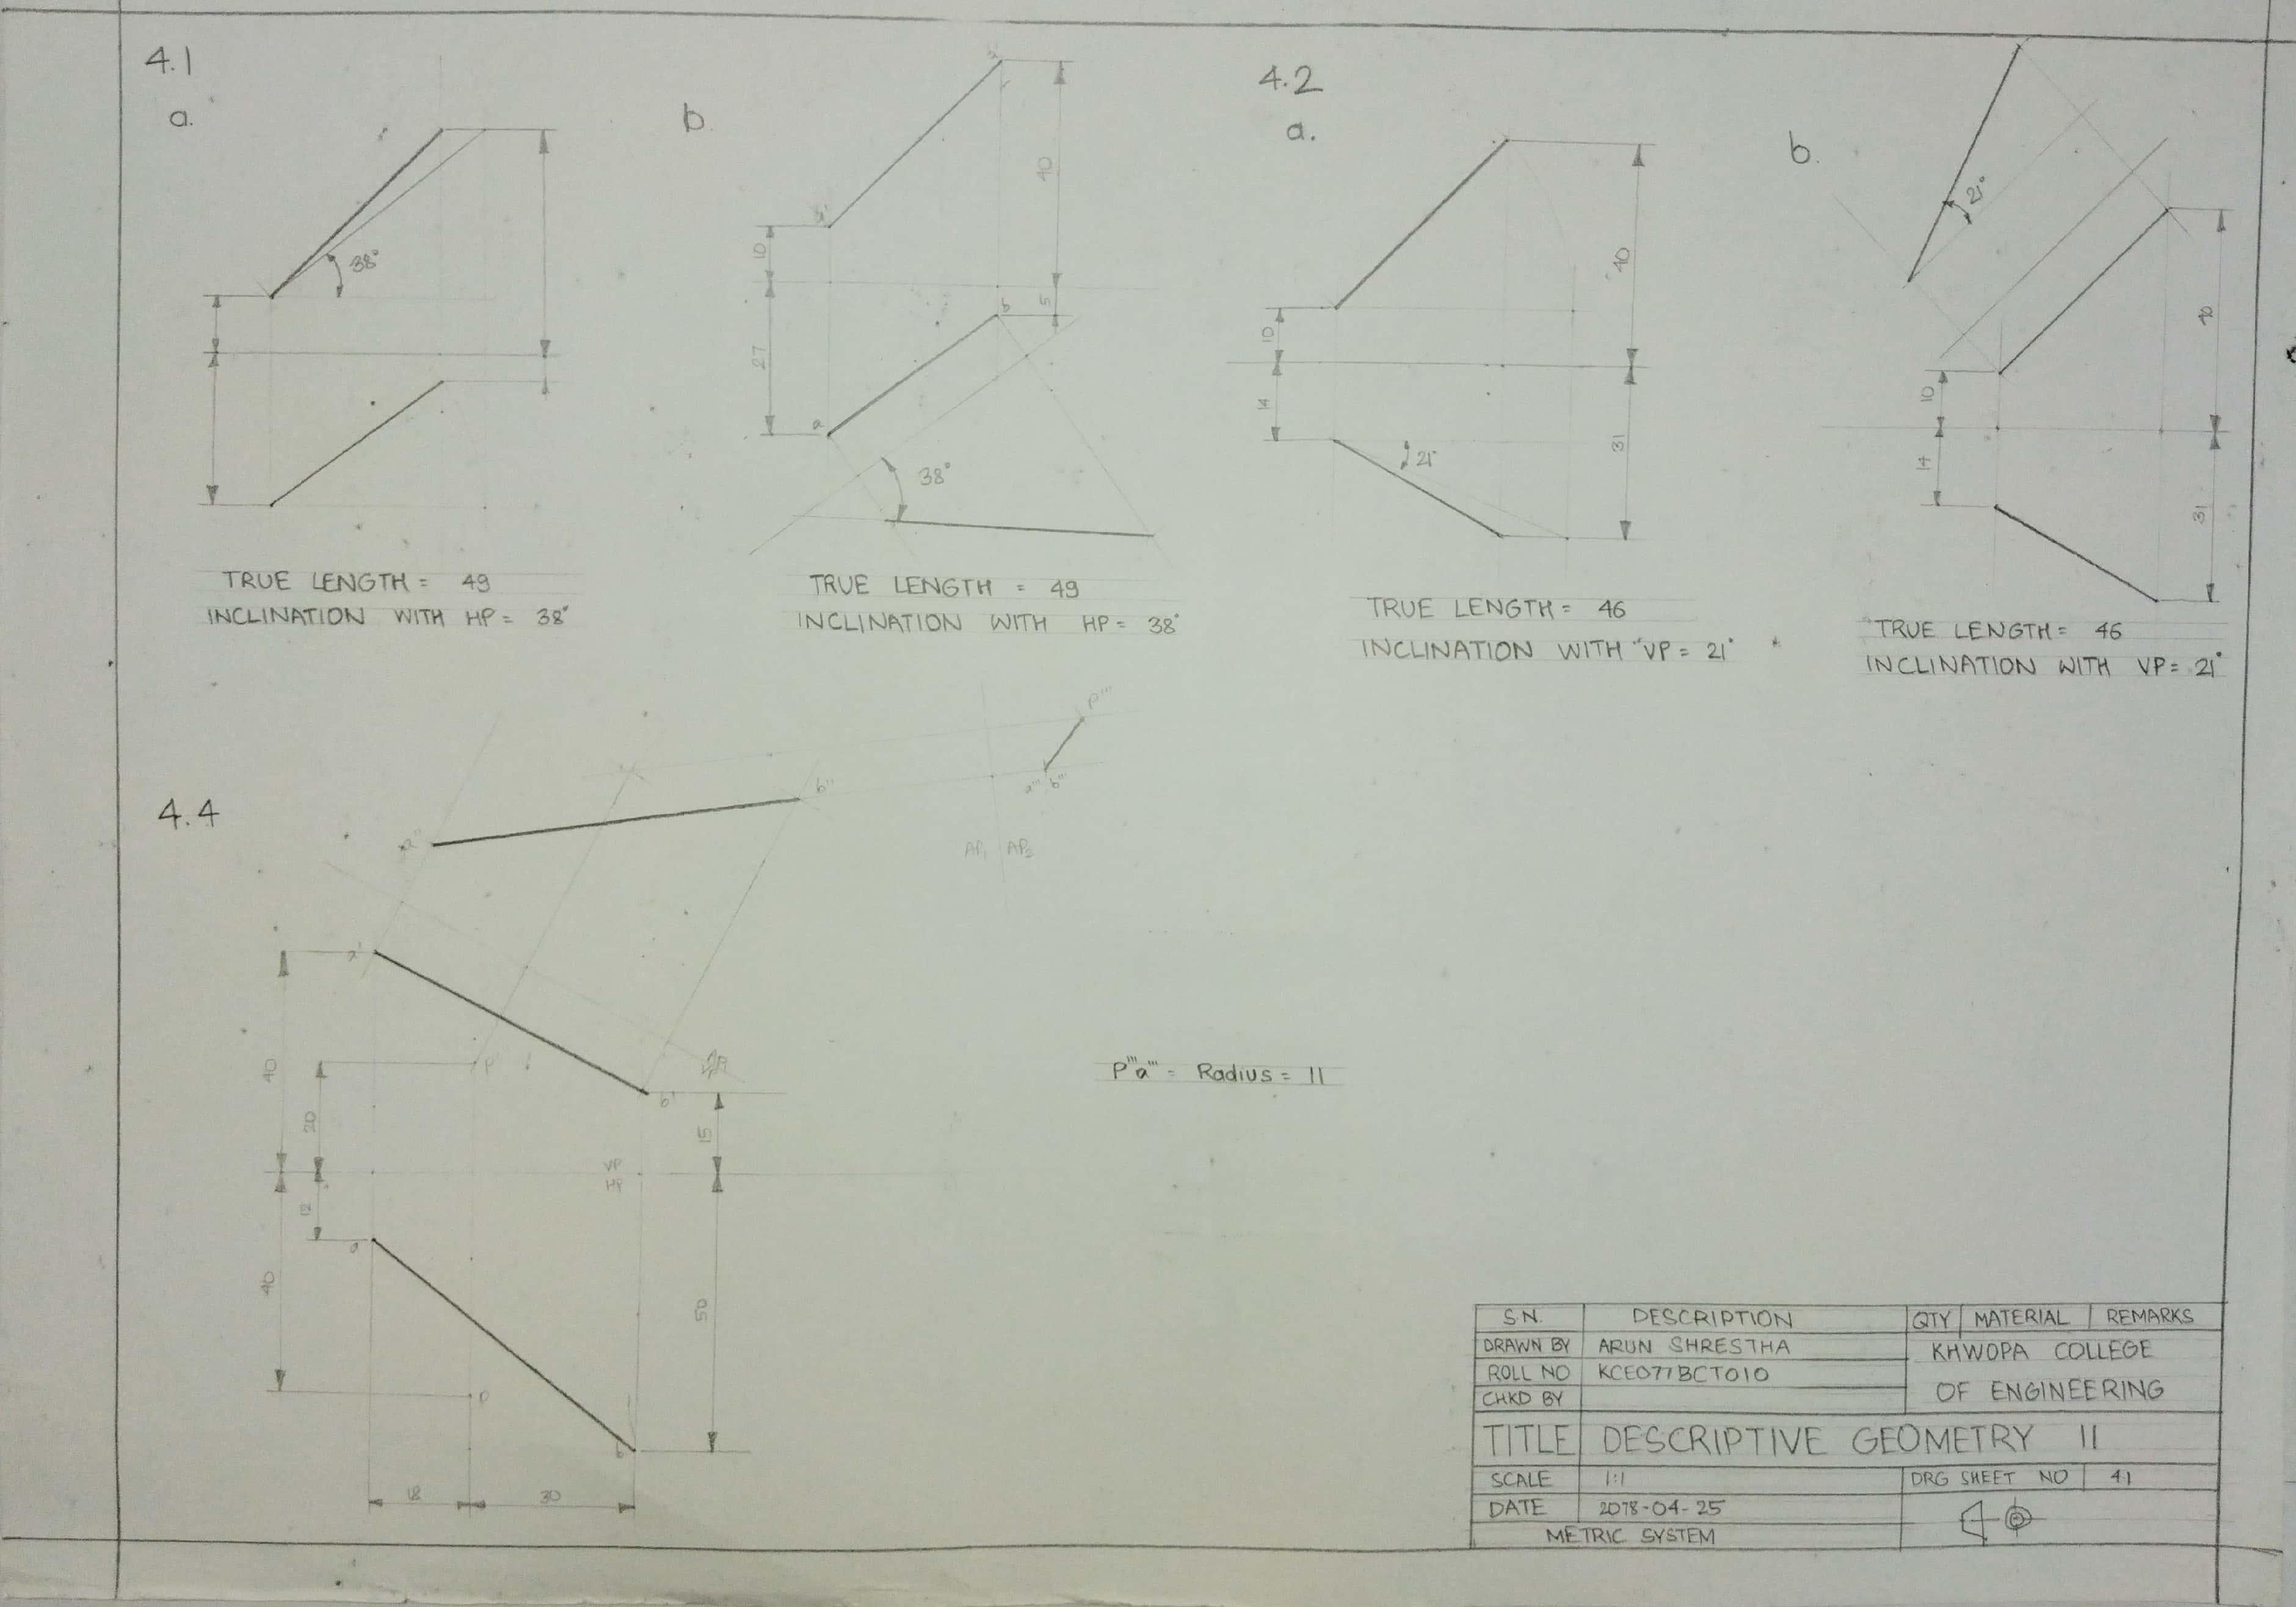 4.1
a.
38°
TRUE LENGTH = 49
INCLINATION WITH HP = 38°
b.
a'
10
40
27
5
a
b
38°
TRUE LENGTH = 49
INCLINATION WITH HP = 38°
4.2
a.
10
40
14
31
21°
TRUE LENGTH = 46
INCLINATION WITH VP = 21°
b.
21°
10
40
14
31
TRUE LENGTH = 46
INCLINATION WITH VP = 21°
4.4
a"
b"
p'''
a''' b'''
AP₁ AP₂
a'
P'
b'
40
20
15
VP
HP
12
a
40
50
P
b
18
30
P'''a''' = Radius = 11
S.N. DESCRIPTION QTY MATERIAL REMARKS
DRAWN BY ARUN SHRESTHA
ROLL NO KCE077BCT010
CHKD BY
KHWOPA COLLEGE
OF ENGINEERING
TITLE DESCRIPTIVE GEOMETRY II
SCALE 1:1 DRG SHEET NO 4.1
DATE 2078-04-25
METRIC SYSTEM